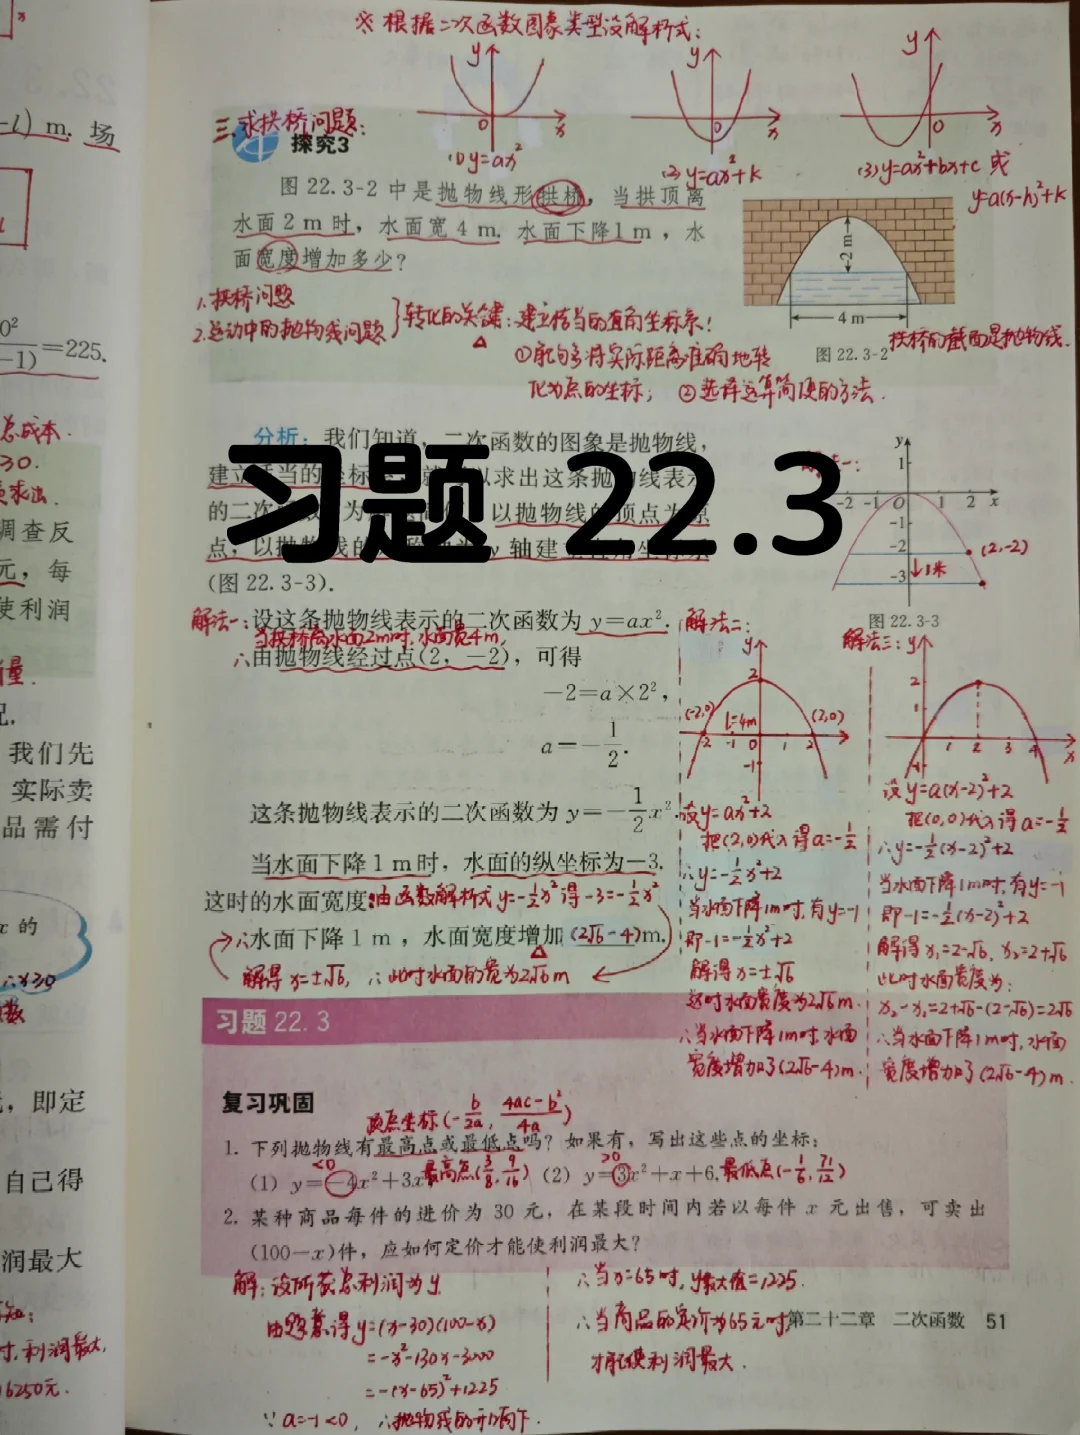 ※根据二次函数图象类型设解析式:
y
y
y
0
x
0
x
0
x
(1) y=ax²
(2) y=ax²+k
(3) y=ax²+bx+c 或
y=a(x-h)²+k
三.求拱桥问题:
探究3
图 22.3-2 中是抛物线形拱桥，当拱顶离
水面 2 m 时，水面宽 4 m. 水面下降1 m，水
面宽度增加多少?
2 m
4 m
图 22.3-2
拱桥的截面是抛物线.
1.拱桥问题
2.运动中的抛物线问题
转化的关键:建立恰当的直角坐标系!
①能够将实际距离准确地转
化为点的坐标; ②选择运算简便的方法.
习题 22.3
分析：我们知道，二次函数的图象是抛物线，
的二次函数
以抛物线的顶点为原
点，以抛物线的
y 轴建
(图 22.3-3).
y
1
-2 -1 O 1 2 x
-1
-2
(2,-2)
-3
↓1米
图 22.3-3
解法一:设这条抛物线表示的二次函数为 y=ax².
当拱桥离水面2m时,水面宽4m,
∴由抛物线经过点(2，-2)，可得
-2=a×2²，
a=-1/2.
这条抛物线表示的二次函数为 y=-1/2x².
当水面下降 1 m时，水面的纵坐标为-3.
这时的水面宽度:由函数解析式 y=-1/2x² 得 -3=-1/2x²
∴水面下降 1 m，水面宽度增加(2√6-4)m.
解得 x=±√6, ∴此时水面的宽为2√6 m
解法二:
y
2
(-2,0)
l=4m
(2,0)
-2 -1 0 1 2
-1
设y=ax²+2
把(2,0)代入得a=-1/2
∴y=-1/2x²+2
当水面下降1m时,有y=-1
即-1=-1/2x²+2
解得x=±√6
这时水面宽度为2√6m.
∴当水面下降1m时,水面
宽度增加了(2√6-4)m.
解法三:
y
2
1
1 2 3 4 x
-1
设y=a(x-2)²+2
把(0,0)代入得a=-1/2
∴y=-1/2(x-2)²+2
当水面下降1m时,有y=-1
即-1=-1/2(x-2)²+2
解得x₁=2-√6, x₂=2+√6
此时水面宽度为:
x₂-x₁=2+√6-(2-√6)=2√6
∴当水面下降1m时,水面
宽度增加了(2√6-4)m.
习题 22.3
复习巩固
顶点坐标(-b/2a, 4ac-b²/4a)
1. 下列抛物线有最高点或最低点吗？如果有，写出这些点的坐标：
<0
>0
(1) y=-4x²+3x 最高点(3/8, 9/16) (2) y=3x²+x+6. 最低点(-1/6, 71/12)
2. 某种商品每件的进价为 30 元，在某段时间内若以每件 x 元出售，可卖出
(100-x)件，应如何定价才能使利润最大？
解:设所获总利润为y.
由题意得y=(x-30)(100-x)
=-x²-130x-3000
=-(x-65)²+1225
∵a=-1<0, ∴抛物线的开口向下.
∴当x=65时,y最大值=1225.
∴当商品的定价为65元时
才能使利润最大.
第二十二章 二次函数 51
-l) m. 场
=225.
总成本.
30.
求出.
调查反
元，每
使利润
量.
况.
我们先
实际卖
品需付
x 的
∴x≥30
数
，即定
自己得
润最大
时,利润最大,
6250元.